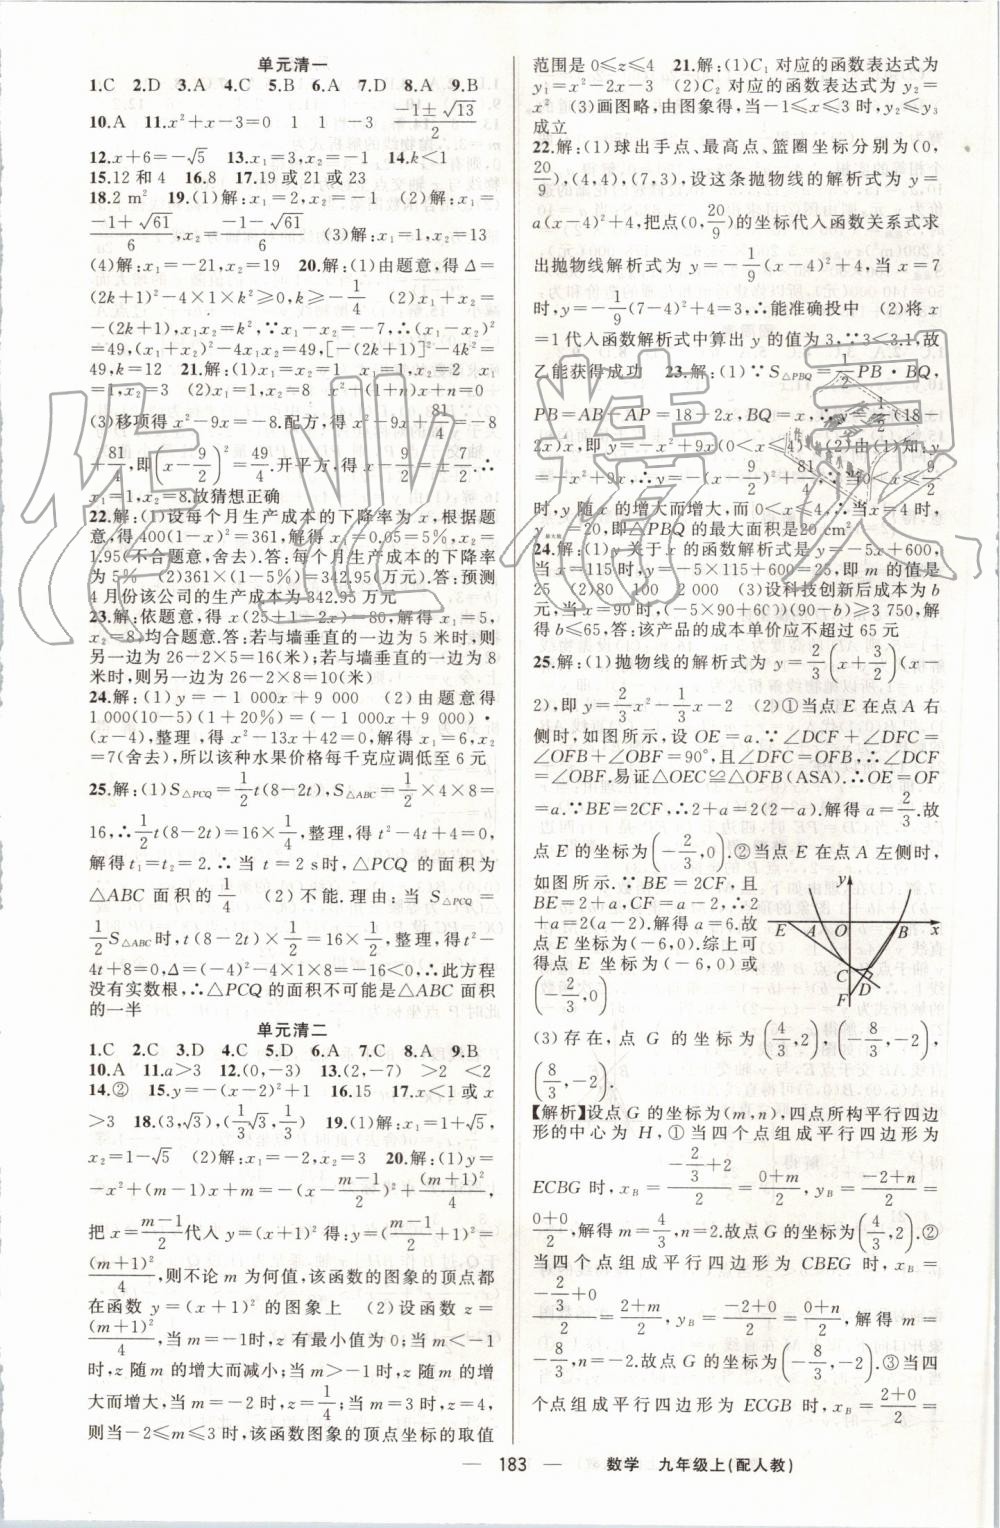 单元清一
1.C 2.D 3.A 4.C 5.B 6.A 7.D 8.A 9.B
10.A 11.x²+x-3=0 1 1 -3 (-1±√13)/2
12.x+6=-√5 13.x₁=3,x₂=-1 14.k<1
15.12和4 16.8 17.19或21或23
18.2 m² 19.(1)解:x₁=2,x₂=-1 (2)解:x₁=
(-1+√61)/6,x₂=(-1-√61)/6 (3)解:x₁=1,x₂=13
(4)解:x₁=-21,x₂=19 20.解:(1)由题意,得Δ=
(2k+1)²-4×1×k²≥0,k≥-1/4 (2)x₁+x₂=
-(2k+1),x₁x₂=k²,∵x₁-x₂=-7,∴(x₁-x₂)²
=49,(x₁+x₂)²-4x₁x₂=49,[-(2k+1)]²-4k²=
49,k=12 21.解:(1)x₁=x₂=1 x₁=1,x₂=2 x₁
=1,x₂=3 (2)x₁=1,x₂=8 x²-(1+n)x+n=0
(3)移项得x²-9x=-8.配方,得x²-9x+81/4=-8
+81/4,即(x-9/2)²=49/4.开平方,得x-9/2=±7/2.∴
x₁=1,x₂=8.故猜想正确
22.解:(1)设每个月生产成本的下降率为x,根据题
意,得400(1-x)²=361,解得x₁=0.05=5%,x₂=
1.95(不合题意,舍去).答:每个月生产成本的下降率
为5% (2)361×(1-5%)=342.95(万元).答:预测
4月份该公司的生产成本为342.95万元
23.解:依题意,得x(25+1-2x)=80,解得x₁=5,
x₂=8,均合题意.答:若与墙垂直的一边为5米时,则
另一边为26-2×5=16(米);若与墙垂直的一边为8
米时,则另一边为26-2×8=10(米)
24.解:(1)y=-1 000x+9 000 (2)由题意得
1 000(10-5)(1+20%)=(-1 000x+9 000)·
(x-4),整理,得x²-13x+42=0,解得x₁=6,x₂
=7(舍去),所以该种水果价格每千克应调低至6元
25.解:(1)S△PCQ=1/2t(8-2t),S△ABC=1/2×4×8=
16,∴1/2t(8-2t)=16×1/4,整理,得t²-4t+4=0,
解得t₁=t₂=2.∴当t=2 s时,△PCQ的面积为
△ABC面积的1/4 (2)不能.理由:当S△PCQ=
1/2S△ABC时,t(8-2t)×1/2=16×1/2,整理,得t²-
4t+8=0,Δ=(-4)²-4×1×8=-16<0,∴此方程
没有实数根,∴△PCQ的面积不可能是△ABC面积
的一半
单元清二
1.C 2.C 3.D 4.C 5.D 6.D 7.C 8.A 9.B
10.A 11.a>3 12.(0,-3) 13.(2,-7) >2 <2
14.② 15.y=-(x-2)²+1 16.15 17.x<1或x
>3 18.(3,√3),(1/3√3,1/3) 19.(1)解:x₁=1+√5,
x₂=1-√5 (2)解:x₁=-2,x₂=3 20.解:(1)y=
-x²+(m-1)x+m=-(x-(m-1)/2)²+(m+1)²/4,
把x=(m-1)/2代入y=(x+1)²得:y=((m-1)/2+1)²=
(m+1)²/4,则不论m为何值,该函数的图象的顶点都
在函数y=(x+1)²的图象上 (2)设函数z=
(m+1)²/4,当m=-1时,z有最小值为0;当m<-1
时,z随m的增大而减小;当m>-1时,z随m的增
大而增大,当m=-2时,z=1/4;当m=3时,z=4,
则当-2≤m≤3时,该函数图象的顶点坐标的取值
范围是0≤z≤4 21.解:(1)C₁对应的函数表达式为
y₁=x²-2x-3 (2)C₂对应的函数表达式为y₂=
x² (3)画图略,由图象得,当-1≤x≤3时,y₂≤y₃
成立
22.解:(1)球出手点、最高点、篮圈坐标分别为(0,
20/9),(4,4),(7,3),设这条抛物线的解析式为y=
a(x-4)²+4,把点(0,20/9)的坐标代入函数关系式求
出抛物线解析式为y=-1/9(x-4)²+4,当x=7
时,y=-1/9(7-4)²+4=3,∴能准确投中 (2)将x
=1代入函数解析式中算出y的值为3,∵3<3.1,故
乙能获得成功 23.解:(1)∵S△PBQ=1/2PB·BQ,
PB=AB-AP=18-2x,BQ=x,∴y=1/2(18-
2x)x,即y=-x²+9x(0<x≤4) (2)由(1)知:y
=-x²+9x,∴y=-(x-9/2)²+81/4,∵当0<x≤9/2
时,y随x的增大而增大,而0<x≤4,∴当x=4时,
y最大值=20,即△PBQ的最大面积是20 cm²
24.解:(1)y关于x的函数解析式是y=-5x+600,
当x=115时,y=-5×115+600=25,即m的值是
25 (2)80 100 2 000 (3)设科技创新后成本为b
元,当x=90时,(-5×90+600)(90-b)≥3 750,解
得b≤65,答:该产品的成本单价应不超过65元
25.解:(1)抛物线的解析式为y=2/3(x+3/2)(x-
2),即y=2/3x²-1/3x-2 (2)①当点E在点A右
侧时,如图所示,设OE=a.∵∠DCF+∠DFC=
∠OFB+∠OBF=90°,且∠DFC=∠OFB,∴∠DCF
=∠OBF.易证△OEC≌△OFB(ASA).∴OE=OF
=a.∵BE=2CF,∴2+a=2(2-a).解得a=2/3.故
点E的坐标为(-2/3,0).②当点E在点A左侧时,
如图所示.∵BE=2CF,且
BE=2+a,CF=a-2,∴2
+a=2(a-2).解得a=6.故
点E坐标为(-6,0).综上可
得点E坐标为(-6,0)或
(-2/3,0)
y
E A O B x
C
F D
(3)存在,点G的坐标为(4/3,2),(-8/3,-2),
(8/3,-2).
【解析】设点G的坐标为(m,n),四点所构平行四边
形的中心为H,①当四个点组成平行四边形为
ECBG时,xB=(-2/3+2)/2=(0+m)/2,yB=(-2+n)/2=
(0+0)/2,解得m=4/3,n=2.故点G的坐标为(4/3,2).②
当四个点组成平行四边形为CBEG时,xB=
(-2/3+0)/2=(2+m)/2,yB=(-2+0)/2=(0+n)/2,解得m=
-8/3,n=-2.故点G的坐标为(-8/3,-2).③当四
个点组成平行四边形为ECGB时,xB=(2+0)/2=
— 183 — 数学 九年级上(配人教)
作业精灵